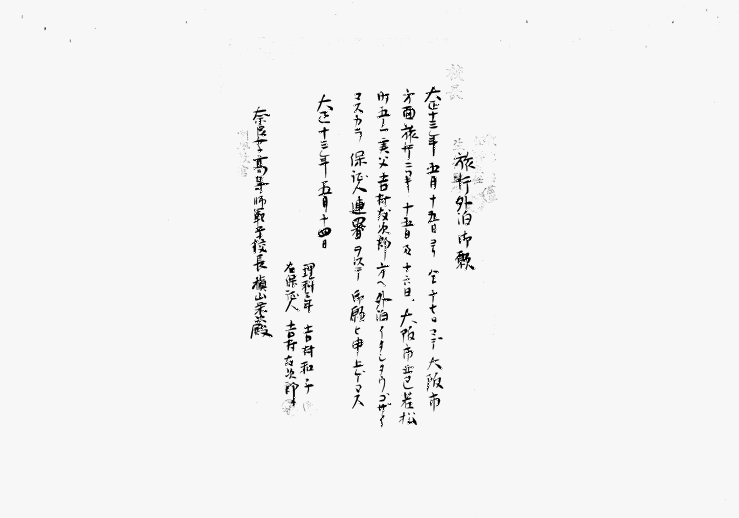 校長
旅行外泊御願
大正十三年五月十五日ヨリ仝十七日マデ大阪市
方面旅行ニツキ十五日及十六日、大阪市西区若松
町五 実父吉村 次郎方ヘ外泊イタシタウゴザイ
マスカラ保証人連署ヲ以テ御願ヒ申上ゲマス
大正十三年五月十四日
理科二年 吉村和子
右保証人 吉村 次郎
奈良女子高等師範学校長 槙山栄次殿